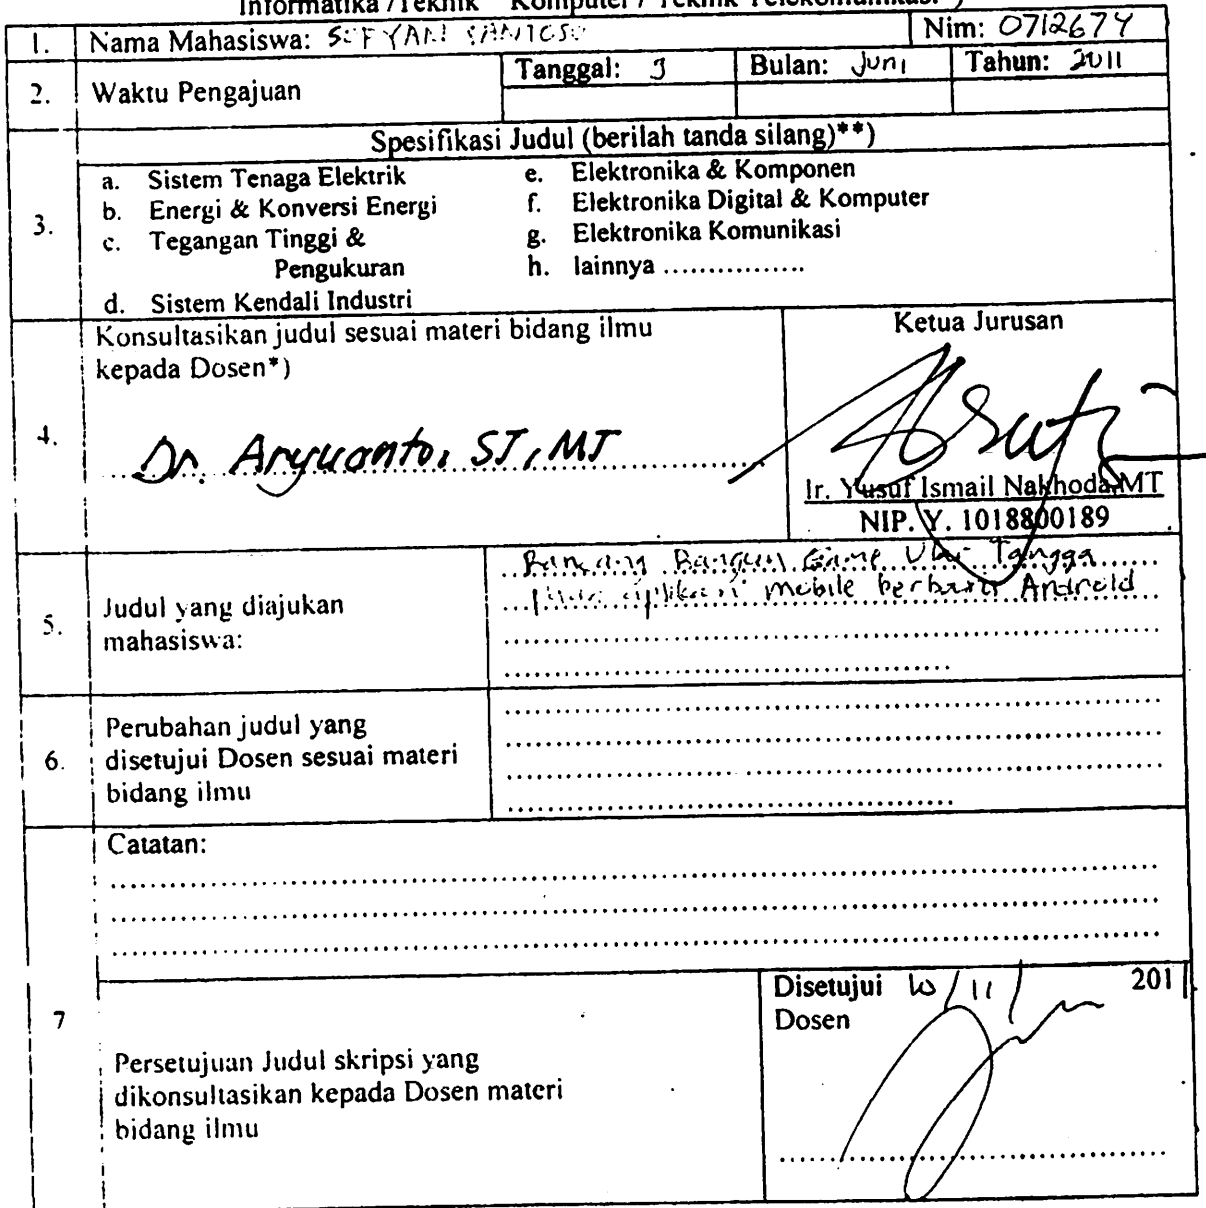 Informatika /Teknik Komputer / Teknik Telekomunikasi *)
1. Nama Mahasiswa: SOFYAN SANTOSO Nim: 0712674
2. Waktu Pengajuan Tanggal: 9 Bulan: Juni Tahun: 2011
Spesifikasi Judul (berilah tanda silang)**)
3.
a. Sistem Tenaga Elektrik
b. Energi & Konversi Energi
c. Tegangan Tinggi &
Pengukuran
d. Sistem Kendali Industri
e. Elektronika & Komponen
f. Elektronika Digital & Komputer
g. Elektronika Komunikasi
h. lainnya ................
4.
Konsultasikan judul sesuai materi bidang ilmu
kepada Dosen*)
Dr. Aryuanto, ST, MT
Ketua Jurusan
Ir. Yusuf Ismail Nakhoda,MT
NIP. Y. 1018800189
5.
Judul yang diajukan
mahasiswa:
Rancang Bangun Game Ular Tangga
aplikasi mobile berbasis Android
6.
Perubahan judul yang
disetujui Dosen sesuai materi
bidang ilmu
7
Catatan:
Persetujuan Judul skripsi yang
dikonsultasikan kepada Dosen materi
bidang ilmu
Disetujui /11/ 2011
Dosen